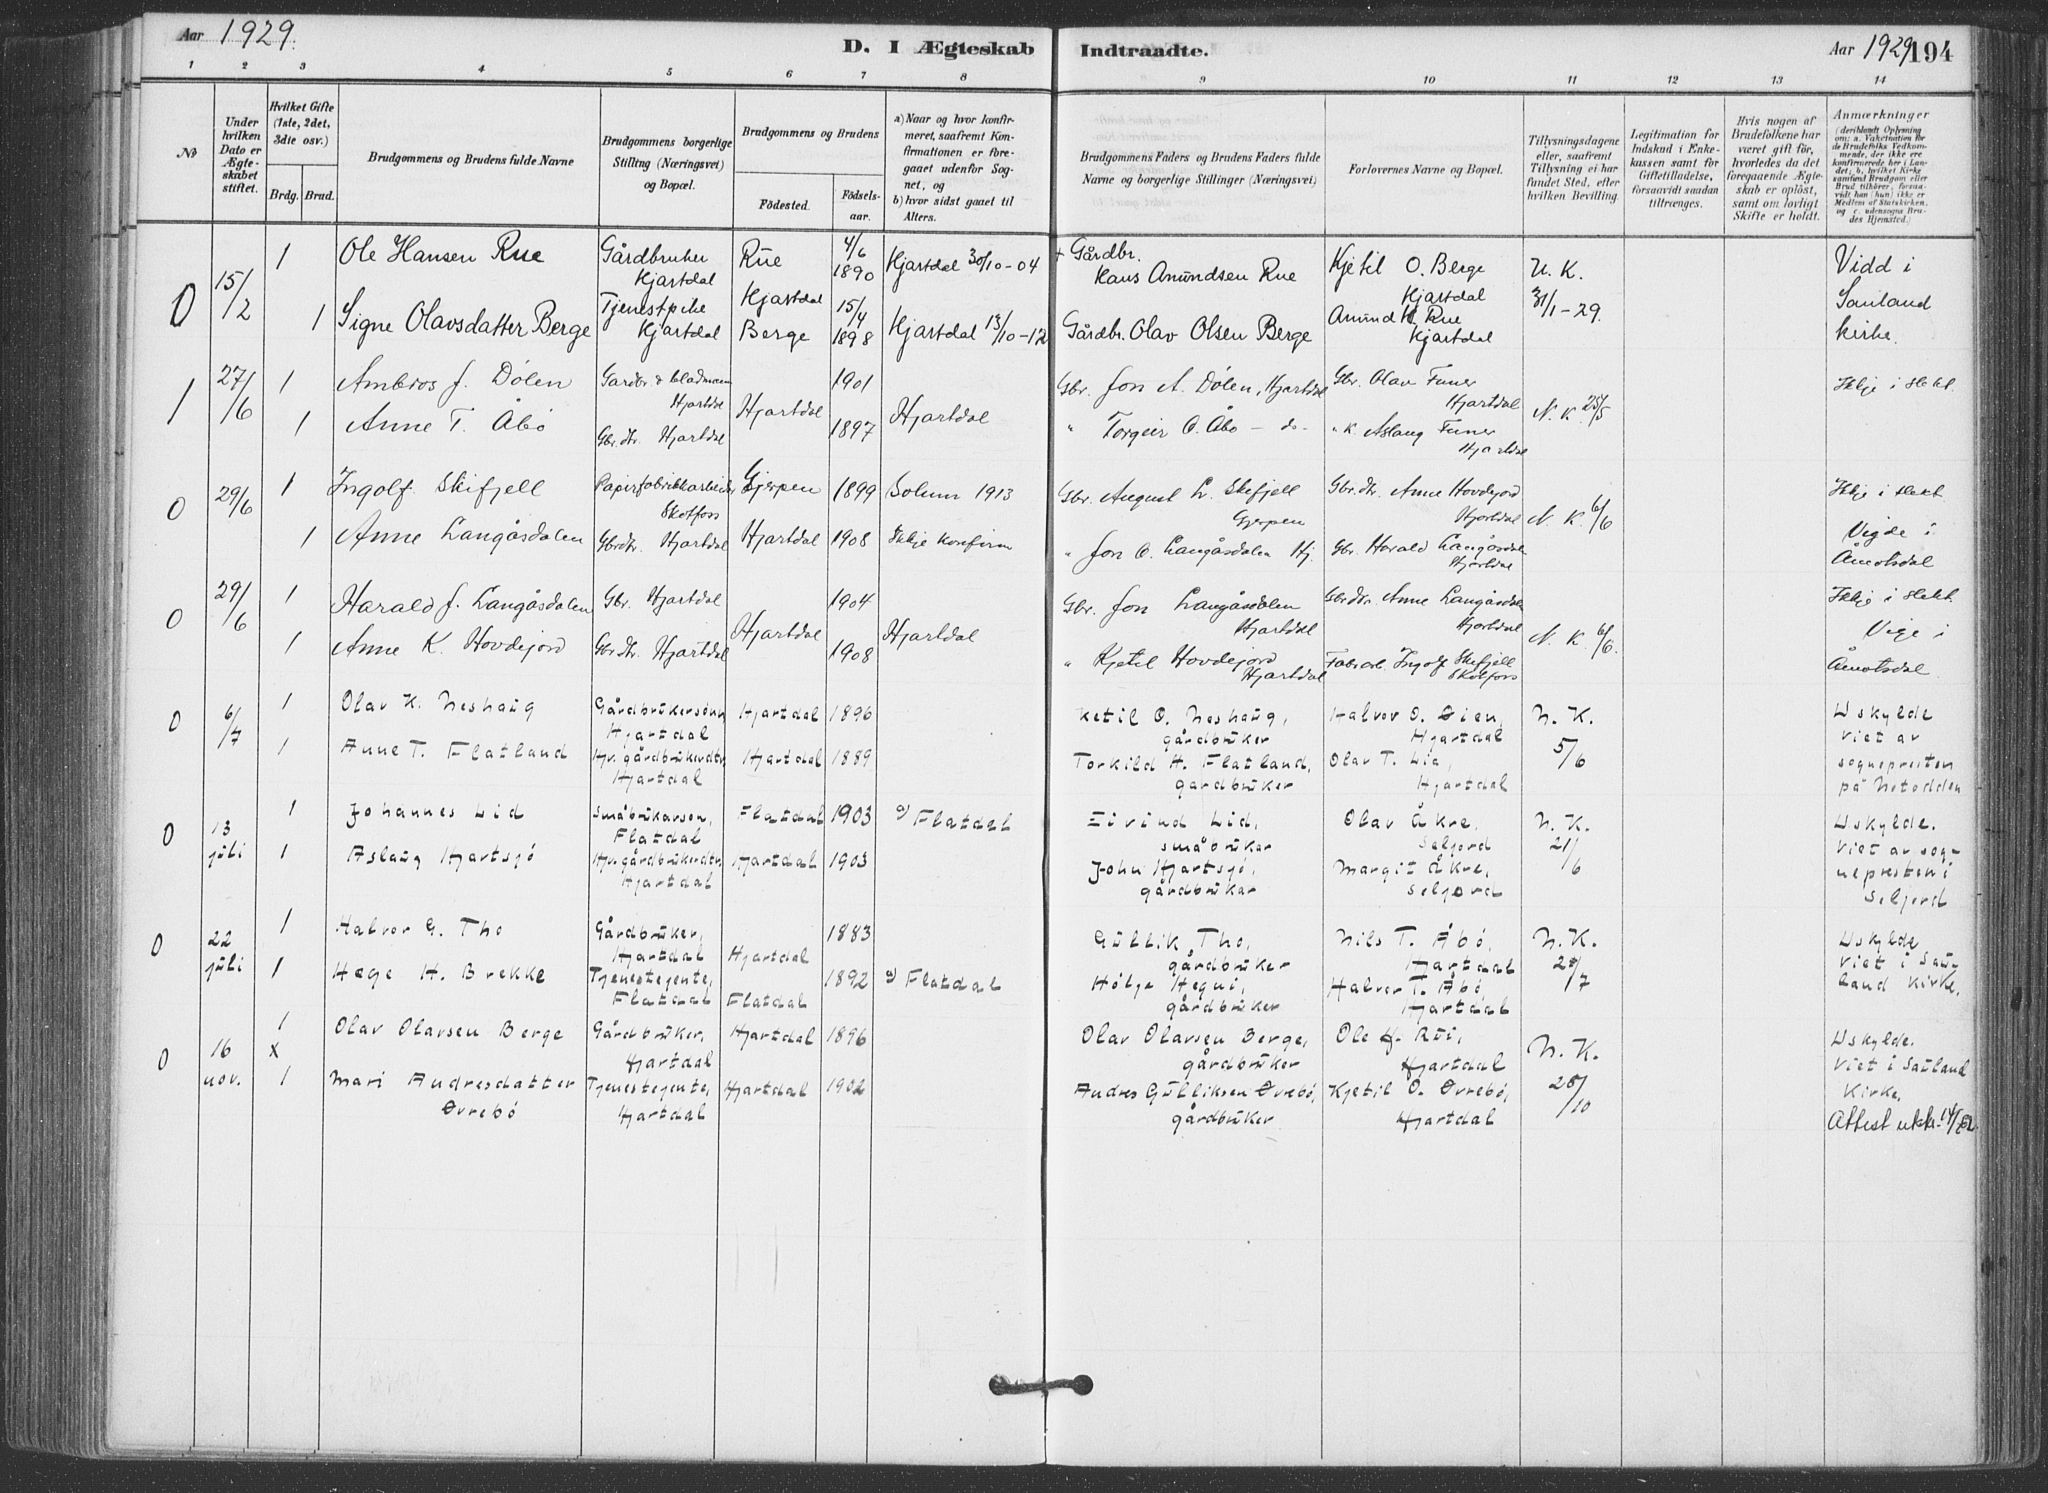 Aar 1929.
D. I Ægteskab Indtraadte.
Aar 1929 194
1 2 3 4 5 6 7 8 9 10 11 12 13 14
No
Under hvilken Dato er Ægteskabet stiftet.
Hvilket Gifte (1ste, 2det, 3die osv.)
Brdg. Brud.
Brudgommens og Brudens fulde Navne
Brudgommens borgerlige Stilling (Næringsvei) og Bopæl.
Brudgommens og Brudens
Födested.
Födselsaar.
a) Naar og hvor konfirmeret, saafremt Konfirmationen er foregaaet udenfor Sognet, og
b) hvor sidst gaaet til Alters.
Brudgommens Faders og Brudens Faders fulde Navne og borgerlige Stillinger (Næringsvei)
Forlovernes Navne og Bopæl.
Tillysningsdagene eller, saafremt Tillysning ei har fundet Sted, efter hvilken Bevilling.
Legitimation for Indskud i Enkekassen samt for Giftetilladelse, forsaavidt saadan tiltrænges.
Hvis nogen af Brudefolkene har været gift för, hvorledes da det foregaaende Ægteskab er oplöst, samt om lovligt Skifte er holdt.
Anmærkninger
(deriblandt Oplysning om: a. Vaccination for Brudefolks Vedkommende, der ikke ere konfirmerede her i Landet; b. hvilket Kirkesamfund Brudgom eller Brud tilhörer, forsaavidt han (hun) ikke er Medlem af Statskirken, og c. udensogns Brudes Hjemsted.)
0 15/2 1 Ole Hansen Rue Gårdbruker Hjartdal Rue Hjartdal 4/6 1890 Hjartdal 30/10-04 + Gårdbr. Hans Amundsen Rue Kjetil O. Berge Hjartdal N. K. 31/1-29. Vidd i Sauland kirke.
1 Signe Olavsdatter Berge Tjenestpike Hjartdal Berge 15/4 1898 Hjartdal 13/10-12 Gårdbr. Olav Olsen Berge Amund H. Rue Hjartdal
1 27/6 1 Ambros J. Dölen Hjartdal 1901 Hjartdal Gbr. Jon A. Dölen, Hjartdal Gbr. Olav Funer Hjartdal N. K. 25/5 Ikkje i slekt.
1 Anne T. Åbö Gbr.dtr. Hjartdal Hjartdal 1897 " Torgeir O. Åbo - do- " k. Aslaug Funer Hjartdal
0 29/6 1 Ingolf Skifjell Papirfabrikkarbeider Skotfoss Gjerpen 1899 Solum 1913 Gbr. August L. Skifjell Gjerpen Gbr.dtr. Anne Hovdejord Hjartdal N. K. 6/6 Ikkje i slekt. Vigde i Åmotsdal
1 Anne Langåsdalen Gbrdtr. Hjartdal Hjartdal 1908 Ikkje konfirm " Jon O. Langåsdalen Hj. Gbr. Harald Langåsdalen Hjartdal
0 29/6 1 Harald J. Langåsdalen Gbr. Hjartdal Hjartdal 1904 Hjartdal Gbr. Jon Langåsdalen Hjartdal Gbrdtr. Anne Langåsdalen Hjartdal N. K. 6/6. Ikkje i slekt. Vige i Åmotsdal.
1 Anne K. Hovdejord Gbr.dtr. Hjartdal 1908 " Kjetil Hovdejord Hjartdal Fabr.arb. Ingolf Skifjell Skotfoss
0 6/7 1 Olav K. Neshaug Gårdbrukersønn Hjartdal Hjartdal 1896 Ketil O. Neshaug, gårdbruker Halvor O. Øien, Hjartdal N. K. 5/6 Uskylde viet av sognepresten på Notodden
1 Anne T. Flatland Hv. gårdbrukerdtr. Hjartdal Hjartdal 1889 Torkild H. Flatland, gårdbruker Olav T. Lia, Hjartdal
0 13 juli 1 Johannes Lid Småbrukarson, Flatdal Flatdal 1903 a) Flatdal Eivind Lid, småbruker Olav Åkre, Seljord N. K. 21/6 Uskylde. Viet av sognepresten i Seljord
1 Aslaug Hjartsjø Hv. gårdbrukerdtr. Hjartdal Hjartdal 1903 John Hjartsjø, gårdbrukar Margit Åkre, Seljord
0 22 juli 1 Halvor G. Tho Gårdbruker, Hjartdal Hjartdal 1883 Gullik Tho, gårdbruker Nils T. Åbø, Hjartdal N. K. Uskylde Viet i Sauland Kirke.
1 Hæge H. Brekke Tjenestejente, Flatdal Flatdal 1892 a) Flatdal gårdbruker Halvor T. Åbø Hjartdal
0 16 nov. 1 x Olav Olavsen Berge Gårdbruker, Hjartdal Hjartdal 1896 Olav Olavsen Berge, gårdbruker Ole H. Rui, Hjartdal N. K. Uskylde. Viet i Sauland Kirke.
1 Mari Andresdatter Øvrebø Tjenestejente, Hjartdal Hjartdal 1902 Andres Gulliksen Øvrebø, gårdbruker Kjetil O. Øvrebø, Hjartdal